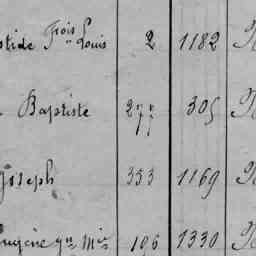 stide Frois Louis 2 1182 N
Baptiste 277 305 N
Joseph 353 1169 N
Eugène 196 1330 N